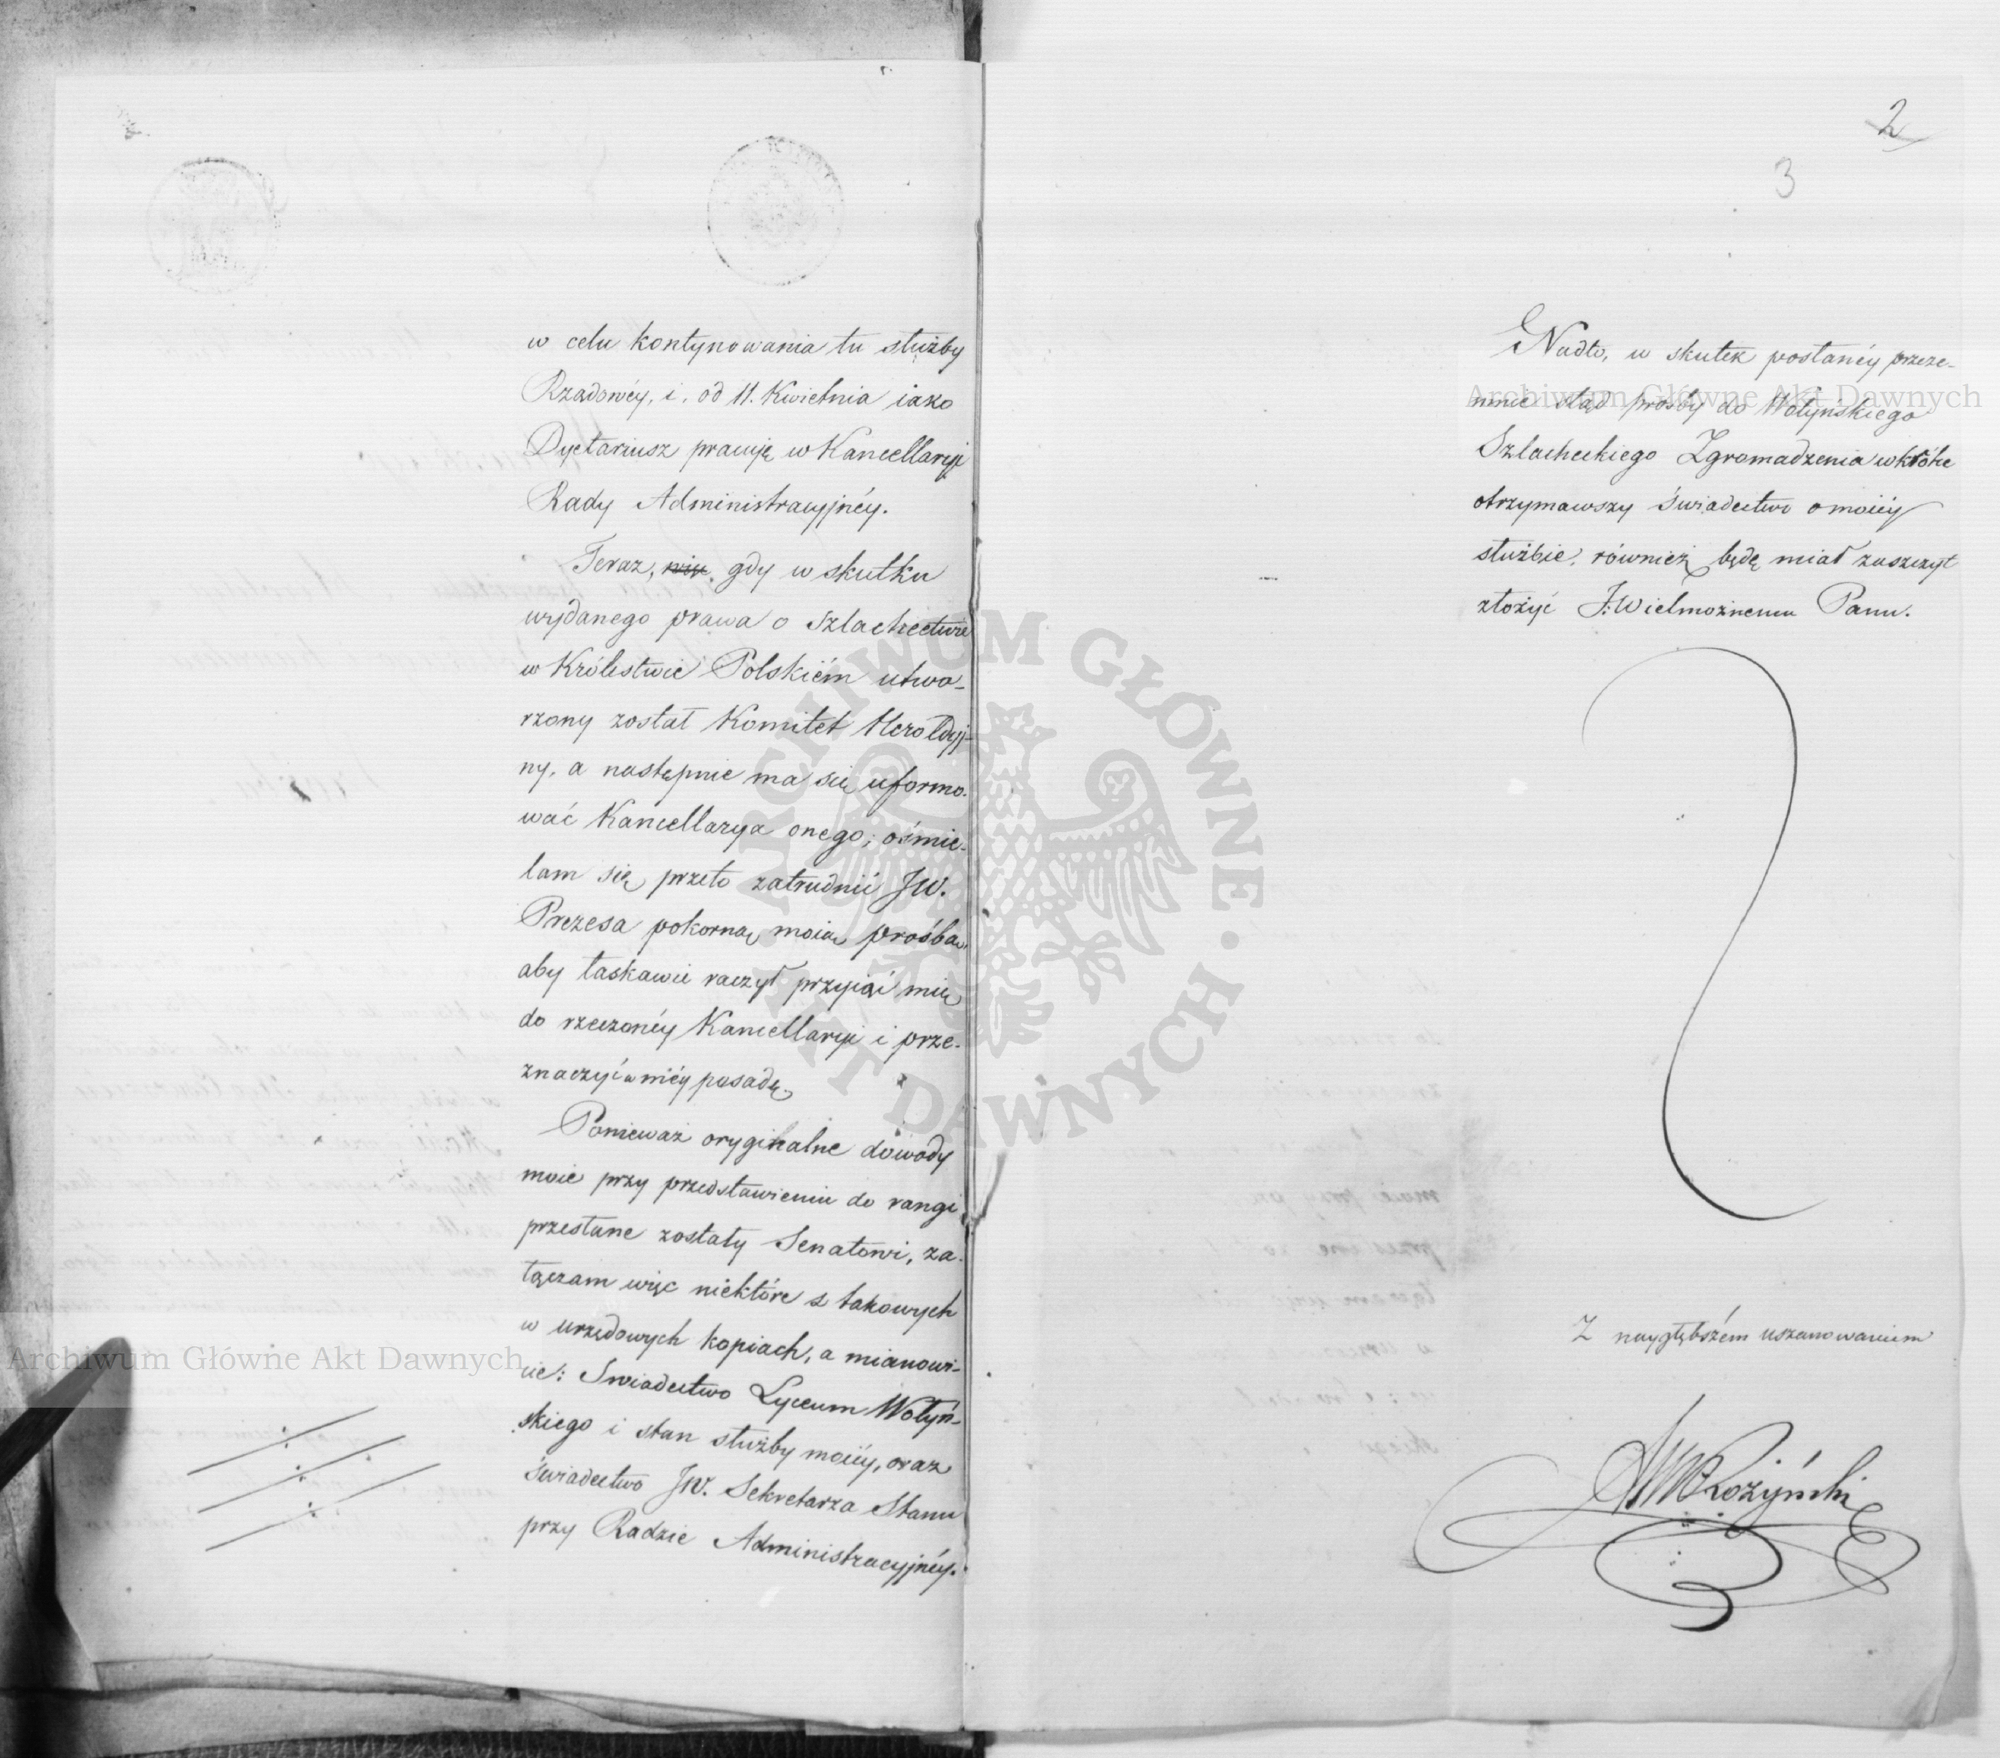 w celu kontynowania tu służby
Rządowéy, i, od 11. Kwietnia iako
Dyetariusz pracuję w Kancellaryi
Rady Administracyjnéy.
Teraz, więc gdy w skutku
wydanego prawa o Szlachectwie
w Królestwie Polskiém utwo-
rzony został Komitet Heroldyj-
ny, a następnie ma się uformo-
wać Kancellarya onego; ośmie-
lam się przeto zatrudnić JW.
Prezesa pokorną moią prośbą,
aby łaskawie raczył przyiąć mię
do rzeczonéy Kancellaryi i prze-
znaczyć w niéy posadę.
Ponieważ oryginalne dowody
moie przy przedstawieniu do rangi
przesłane zostały Senatowi, za-
łączam więc niektóre z takowych
w urzędowych kopiach, a mianowi-
cie: Swiadectwo Lyceum Wołyń-
skiego i stan służby moiéy, oraz
świadectwo JW. Sekretarza Stanu
przy Radzie Administracyjnéy.
2
3
Nadto, w skutek posłanéy przeze-
mnie stąd prośby do Wołynskiego
Szlacheckiego Zgromadzenia wkrótce
otrzymawszy świadectwo o moiéy
służbie, również będę miał zaszczyt
złożyć J:Wielmożnemu Panu.
Z naygłębszém uszanowaniem
Rożyński
Archiwum Główne Akt Dawnych
Archiwum Główne Akt Dawnych
ARCHIWUM GŁÓWNE AKT DAWNYCH